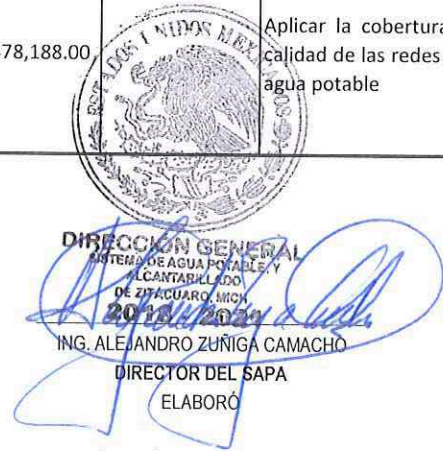 78,188.00
Aplicar la cobertura
calidad de las redes
agua potable
ESTADOS UNIDOS MEXICANOS
DIRECCIÓN GENERAL
SISTEMA DE AGUA POTABLE Y
ALCANTARILLADO
DE ZITACUARO, MICH
2018 2021
ING. ALEJANDRO ZUÑIGA CAMACHO
DIRECTOR DEL SAPA
ELABORÓ